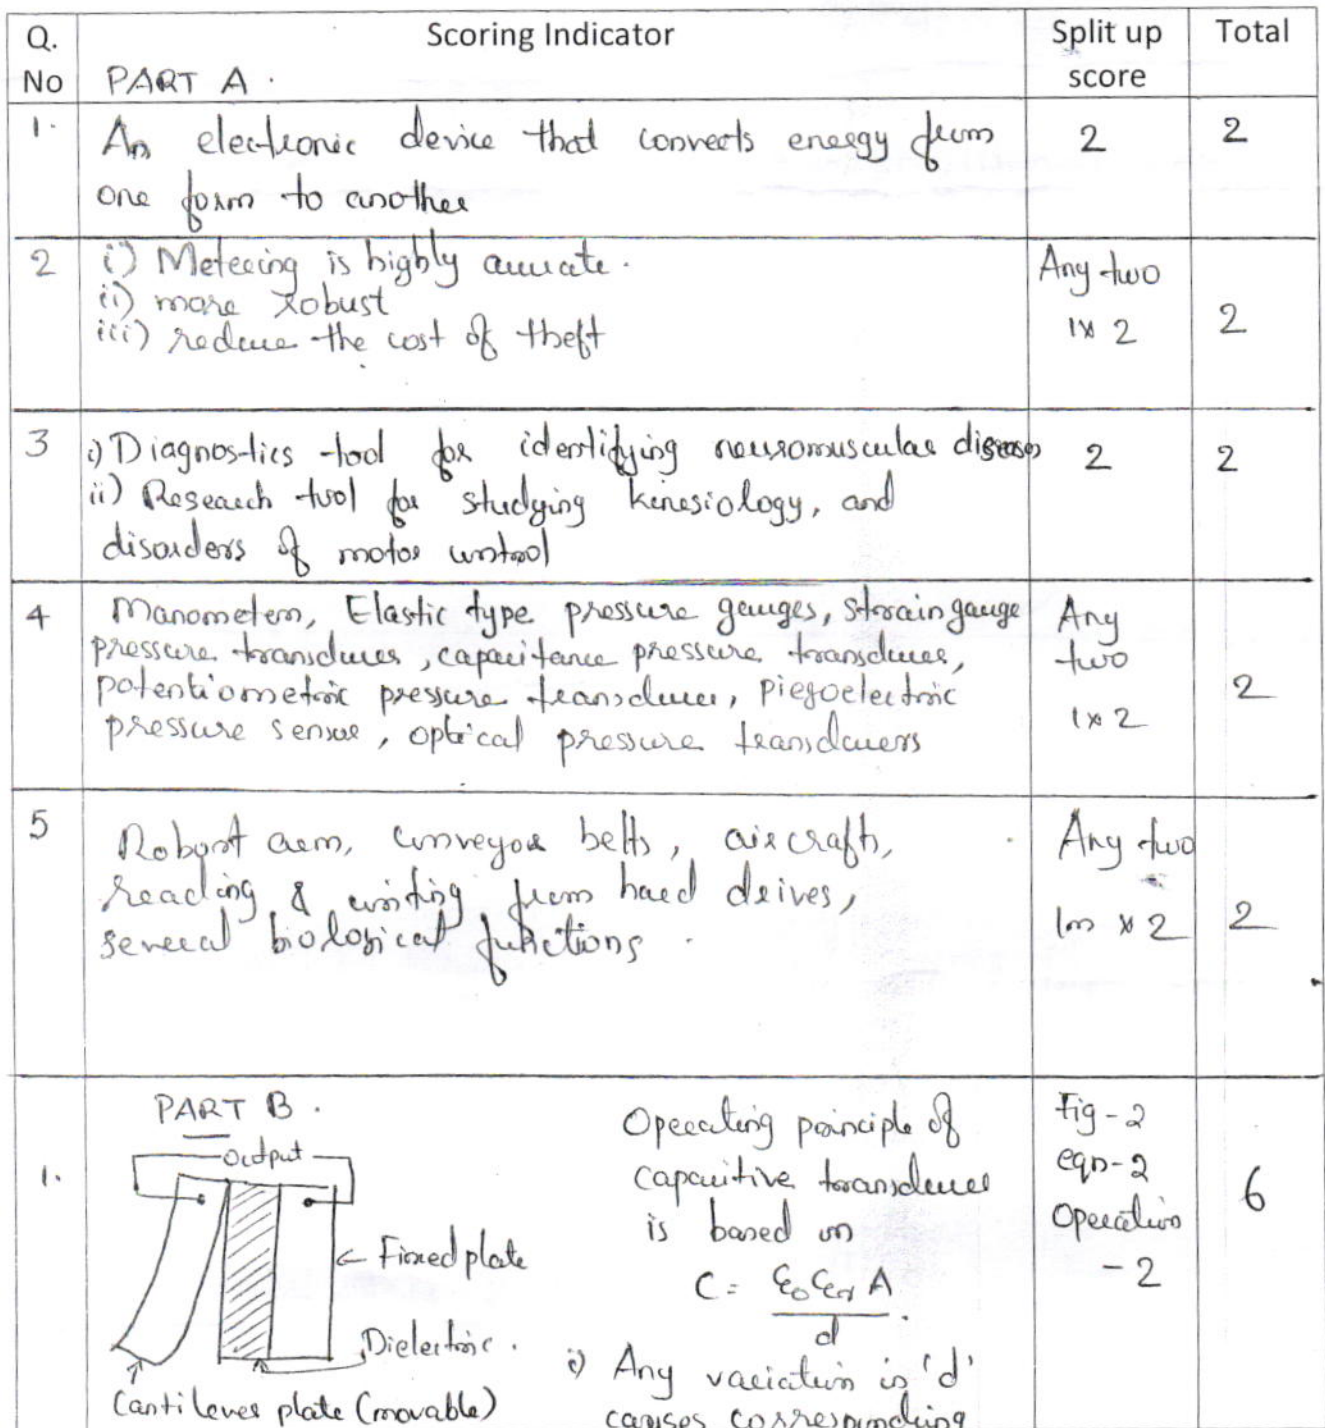 Q. No Scoring Indicator Split up score Total
PART A.
1. An electronic device that converts energy from 2 2
one form to another
2 i) Metering is highly accurate. Any two
ii) more robust 1x2 2
iii) reduce the cost of theft
3 i) Diagnostics tool for identifying neuromuscular diseases 2 2
ii) Research tool for studying kinesiology, and
disorders of motor control
4 Manometers, Elastic type pressure gauges, strain gauge Any
pressure transducer, capacitance pressure transducer, two
potentiometric pressure transducer, piezoelectric 2
pressure sensor, optical pressure transducers 1x2
5 Robot arm, conveyor belts, aircraft, Any two
reading & writing from hard drives, 1m x 2 2
several biological functions.
PART B.
1.
output
Fixed plate
Dielectric.
Cantilever plate (movable)
Operating principle of
capacitive transducer
is based on
C = ε₀εᵣ A / d.
i) Any variation in 'd'
causes corresponding
Fig-2
eqn-2
Operation
-2
6